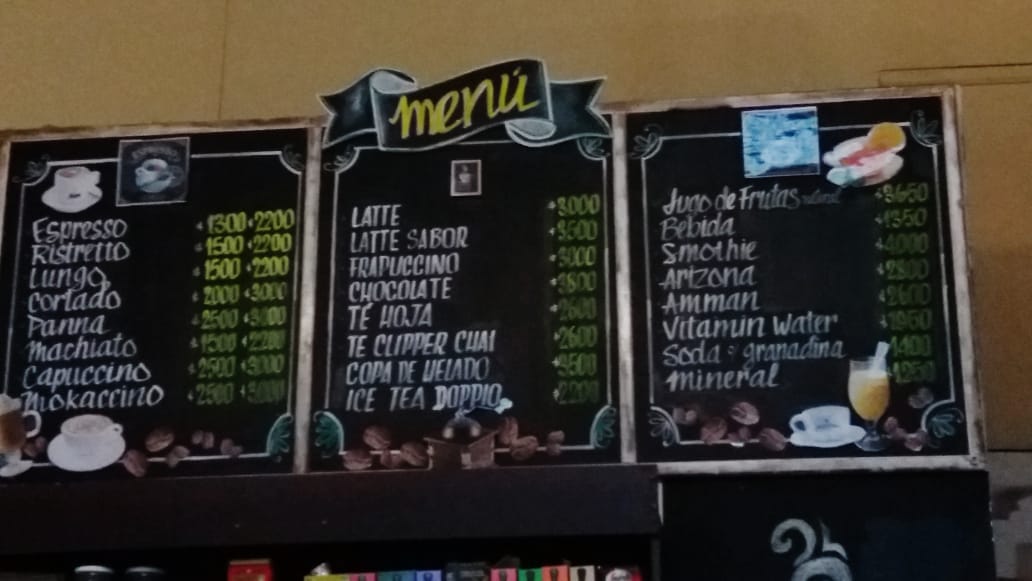 menú
Espresso 1300 2200
Ristretto 1500 2200
Lungo 1500 2200
Cortado 2000 3000
Panna 2500
Machiato
Capuccino 2500 3000
Mokaccino 2500 3000
LATTE 3000
LATTE SABOR 3500
FRAPUCCINO 3000
CHOCOLATE 3800
TÉ HOJA 2600
TE CLIPPER CHAI 2600
COPA DE HELADO 3500
ICE TEA DOPPIO 2200
Jugo de Frutas natural 3650
Bebida 1350
Smothie 4000
Arizona 2800
Amman 2600
Vitamin Water 1950
Soda granadina
Mineral